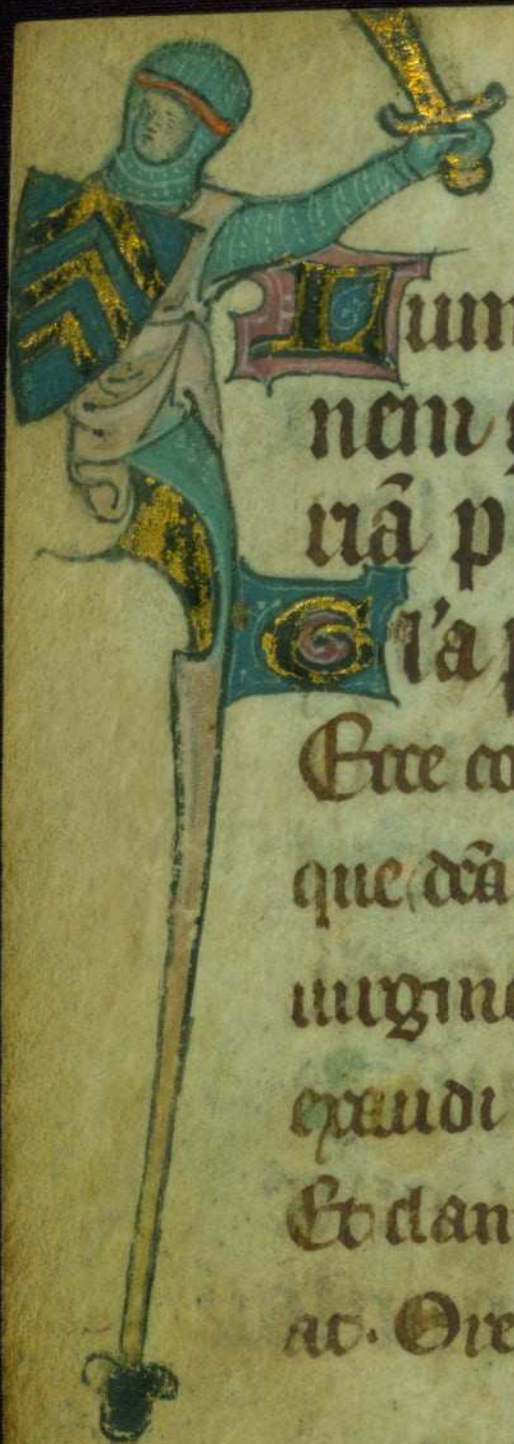 Lum
nem g
riã p
Gl'a p
Ecce co
que dc̃a
uirgine
exaudi
Et clam
at. Ore